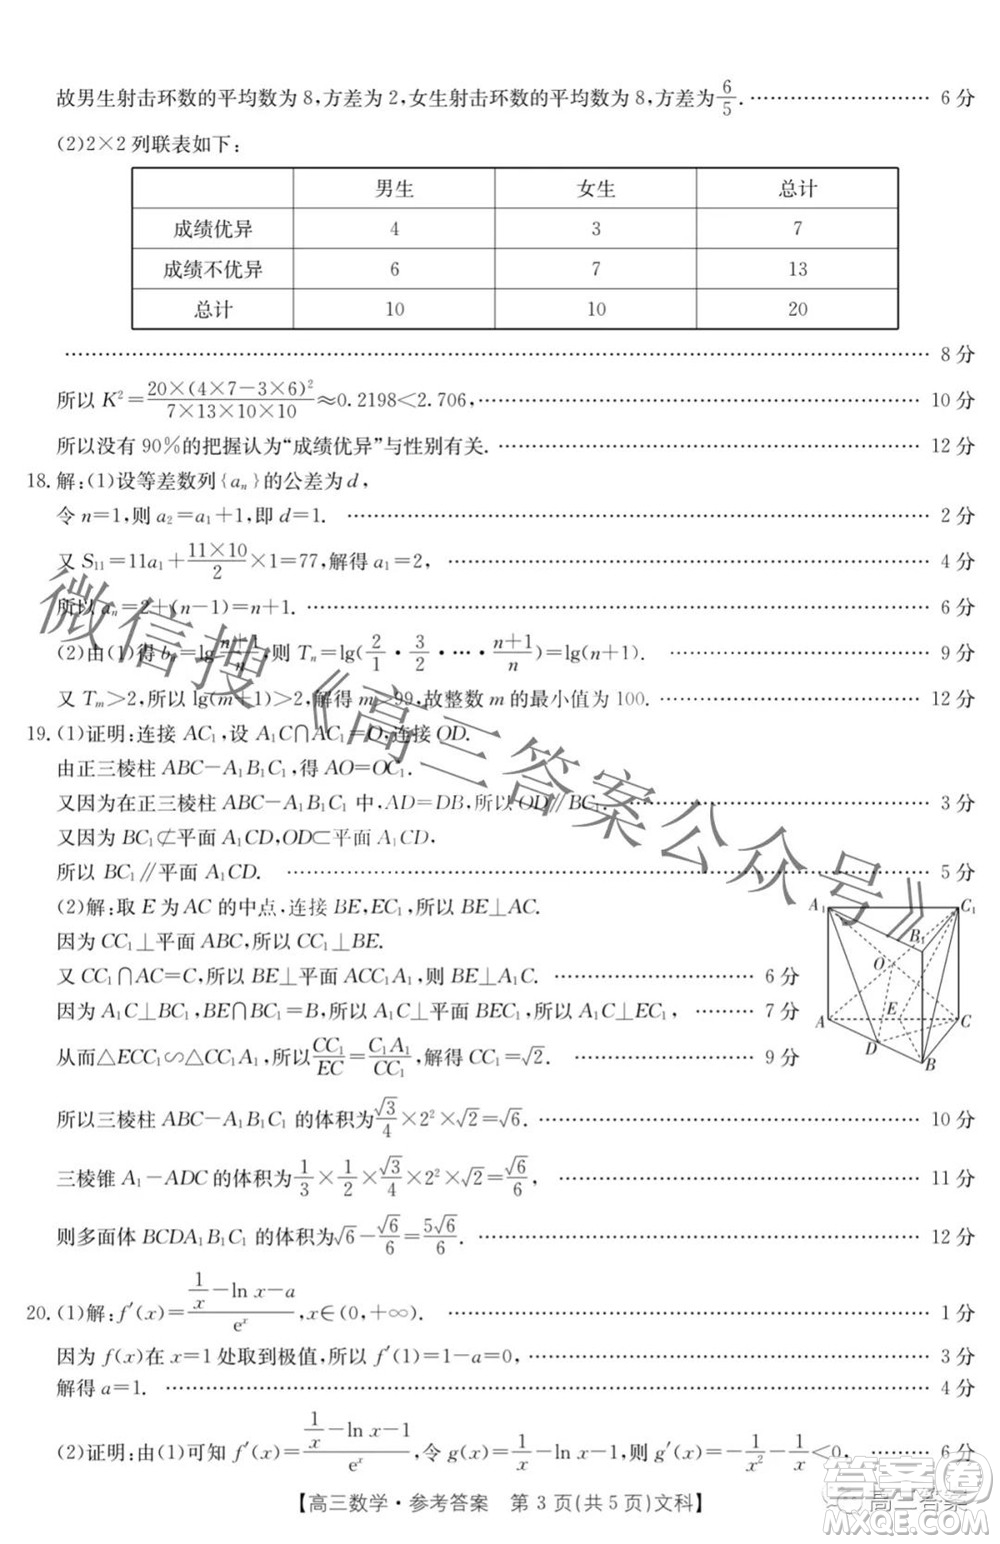 故男生射击环数的平均数为8,方差为2,女生射击环数的平均数为8,方差为6/5. …… 6分
(2)2×2列联表如下:
男生 女生 总计
成绩优异 4 3 7
成绩不优异 6 7 13
总计 10 10 20
…… 8分
所以K²=20×(4×7-3×6)²/(7×13×10×10)≈0.2198<2.706, …… 10分
所以没有90%的把握认为“成绩优异”与性别有关. …… 12分
18.解:(1)设等差数列{aₙ}的公差为d,
令n=1,则a₂=a₁+1,即d=1. …… 2分
又S₁₁=11a₁+(11×10)/2×1=77,解得a₁=2, …… 4分
所以aₙ=2+(n-1)=n+1. …… 6分
(2)由(1)得bₙ=lg(n+1)/n,则Tₙ=lg(2/1·3/2·…·(n+1)/n)=lg(n+1). …… 9分
又Tₘ>2,所以lg(m+1)>2,解得m>99,故整数m的最小值为100. …… 12分
19.(1)证明:连接AC₁,设A₁C∩AC₁=O,连接OD.
由正三棱柱ABC-A₁B₁C₁,得AO=OC₁.
又因为在正三棱柱ABC-A₁B₁C₁中,AD=DB,所以OD∥BC₁. …… 3分
又因为BC₁⊄平面A₁CD,OD⊂平面A₁CD,
所以BC₁∥平面A₁CD. …… 5分
(2)解:取E为AC的中点,连接BE,EC₁,所以BE⊥AC.
因为CC₁⊥平面ABC,所以CC₁⊥BE.
又CC₁∩AC=C,所以BE⊥平面ACC₁A₁,则BE⊥A₁C. …… 6分
因为A₁C⊥BC₁,BE∩BC₁=B,所以A₁C⊥平面BEC₁,所以A₁C⊥EC₁, …… 7分
从而△ECC₁∽△CC₁A₁,所以CC₁/EC=C₁A₁/CC₁,解得CC₁=√2. …… 9分
A₁ C₁ B₁ O A E C D B
所以三棱柱ABC-A₁B₁C₁的体积为√3/4×2²×√2=√6. …… 10分
三棱锥A₁-ADC的体积为1/3×1/2×√3/4×2²×√2=√6/6, …… 11分
则多面体BCDA₁B₁C₁的体积为√6-√6/6=5√6/6. …… 12分
20.(1)解:f′(x)=(1/x-ln x-a)/eˣ,x∈(0,+∞). …… 1分
因为f(x)在x=1处取到极值,所以f′(1)=1-a=0, …… 3分
解得a=1. …… 4分
(2)证明:由(1)可知f′(x)=(1/x-ln x-1)/eˣ,令g(x)=1/x-ln x-1,则g′(x)=-1/x²-1/x<0, …… 6分
【高三数学·参考答案 第3页(共5页)文科】
微信搜《高三答案公众号》
答案圈
高三答案
MXQE.COM